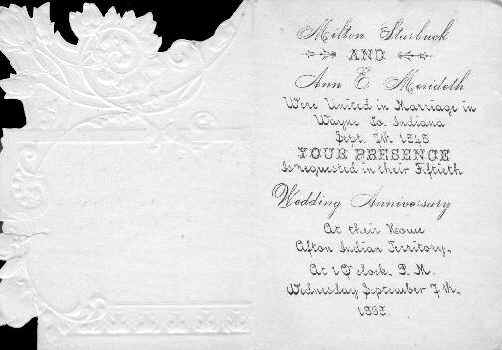 Milton Starbuck
AND
Ann E Merideth
Were United in Marriage in
Wayne Co. Indiana
Sept. 7th. 1848
YOUR PRESENCE
Is requested in their Fiftieth
Wedding Anniversary
At their Home
Afton Indian Territory,
At 1 O'clock, P.M.
Wednesday September 7th,
1898.